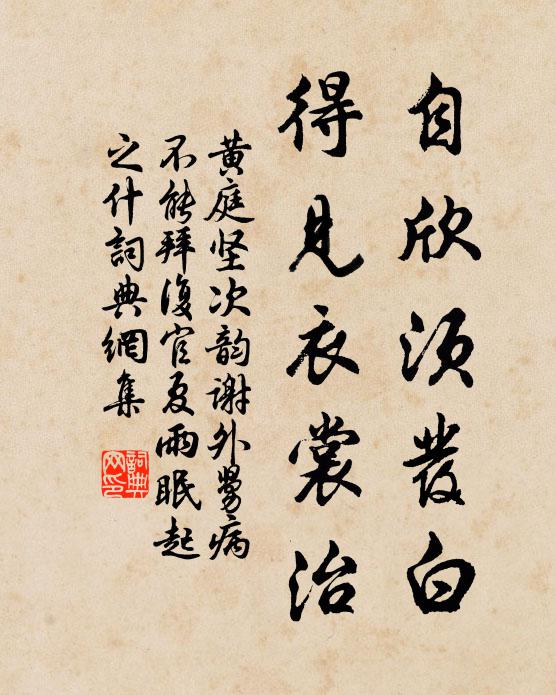 自欣须發白
得見衣裳治
黄庭坚次韵謝外舅病
不能拜復官夏雨眠起
之什詞典網集
詞典
网印